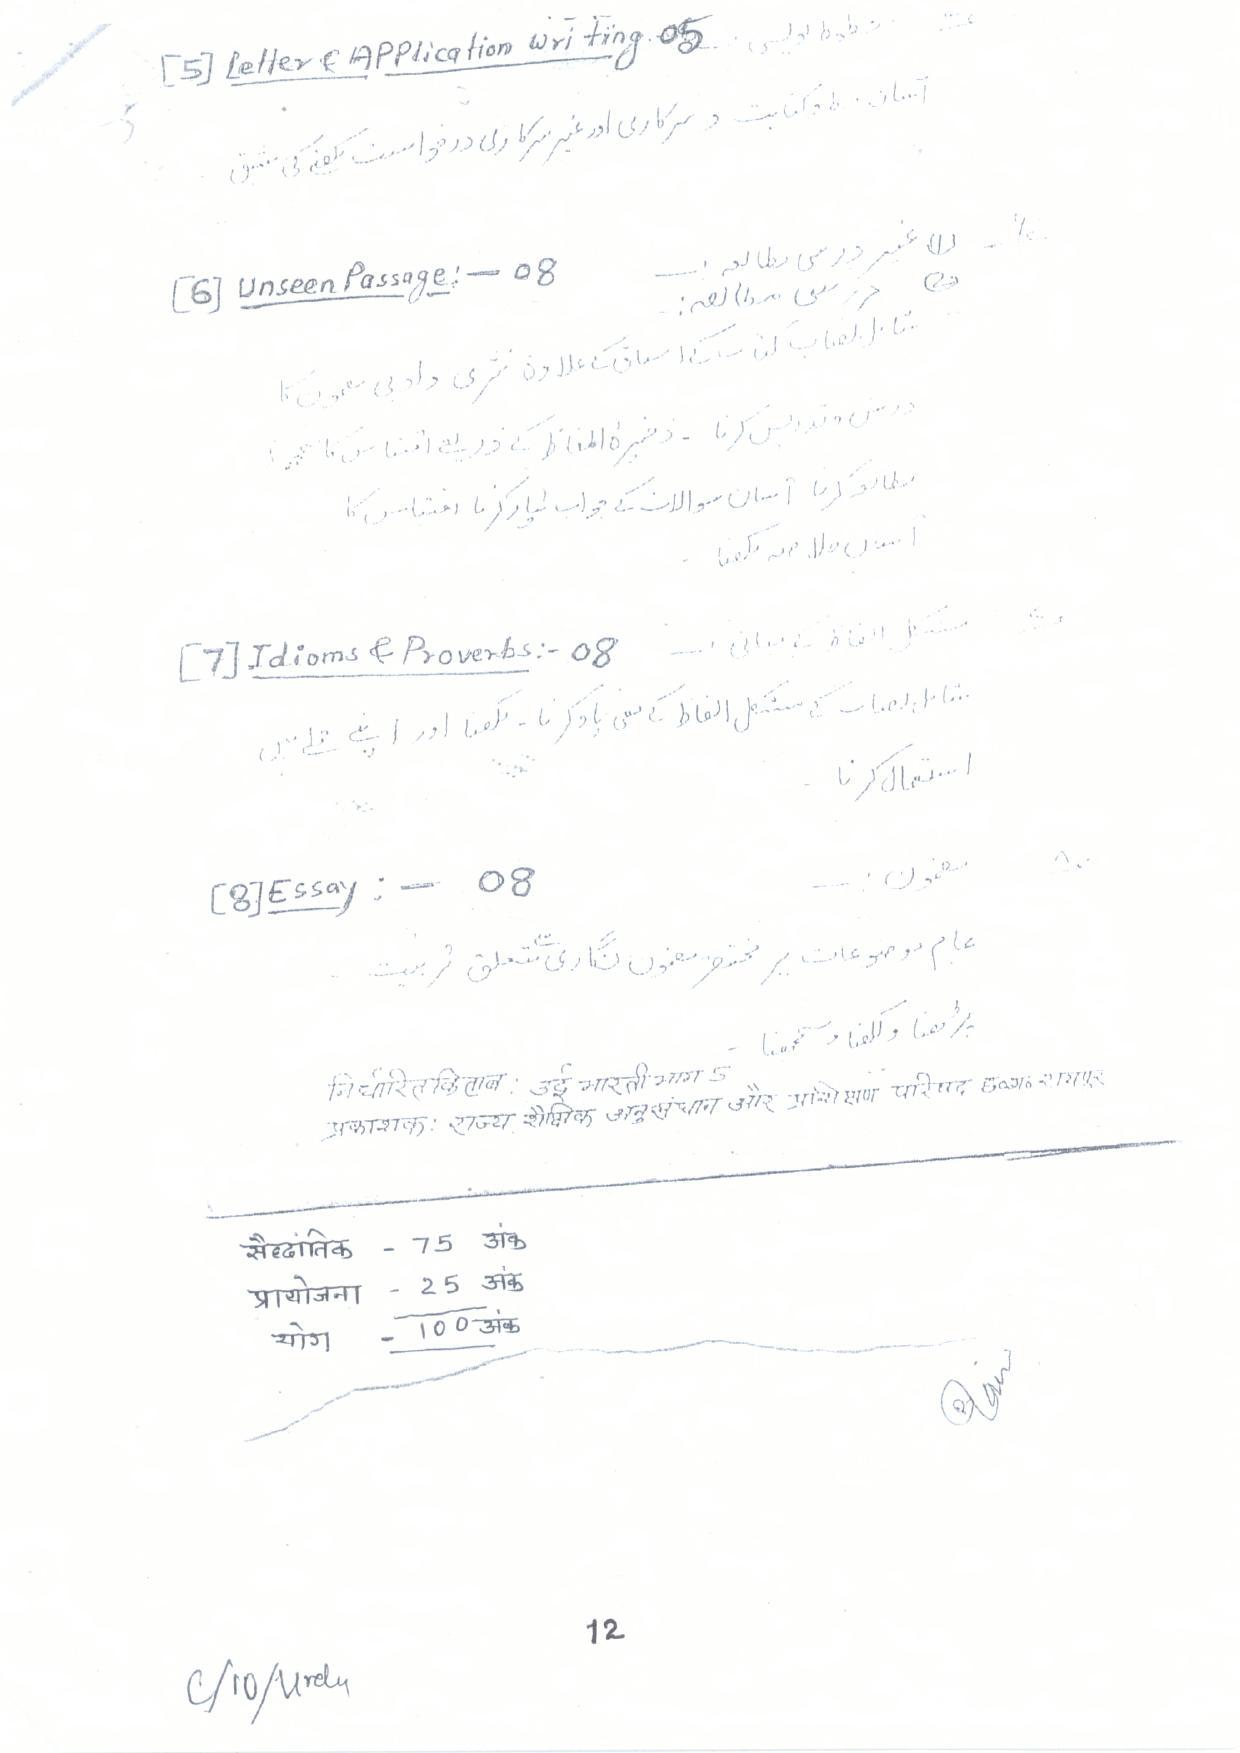 [5] Letter & Application Writing. 05 خطوط نویسی :
آسان خط و کتابت و سرکاری اور غیر سرکاری درخواست لکھنے کی مشق
[6] Unseen Passage :— 08 (۱) غیر درسی مطالعہ :—
(۲) درسی مطالعہ :-
شامل نصاب کتاب کے اسباق کے علاوہ نثری و ادبی مضمون کا
درس و تدریس کرنا - ذخیرۂ الفاظ کے ذریعے اقتباس کا
مطالعہ کرنا آسان سوالات کے جواب تیار کرنا اقتباس کا
لکھنا -
[7] Idioms & Proverbs :- 08 مشکل الفاظ کے معانی :—
شامل نصاب کے مشکل الفاظ کے معنی یاد کرنا - لکھنا اور اپنے جملے میں
استعمال کرنا -
[8] Essay : — 08 مضمون : —
عام موضوعات پر مختصر مضمون نگاری سے متعلق تربیت -
پڑھنا و لکھنا و سمجھنا -
निर्धारित किताब : उर्दू भारती भाग 5
प्रकाशक : राज्य शैक्षिक अनुसंधान और प्रशिक्षण परिषद छ०ग० रायपुर
सैद्धांतिक - 75 अंक
प्रायोजना - 25 अंक
योग - 100 अंक
12
C/10/Urdu